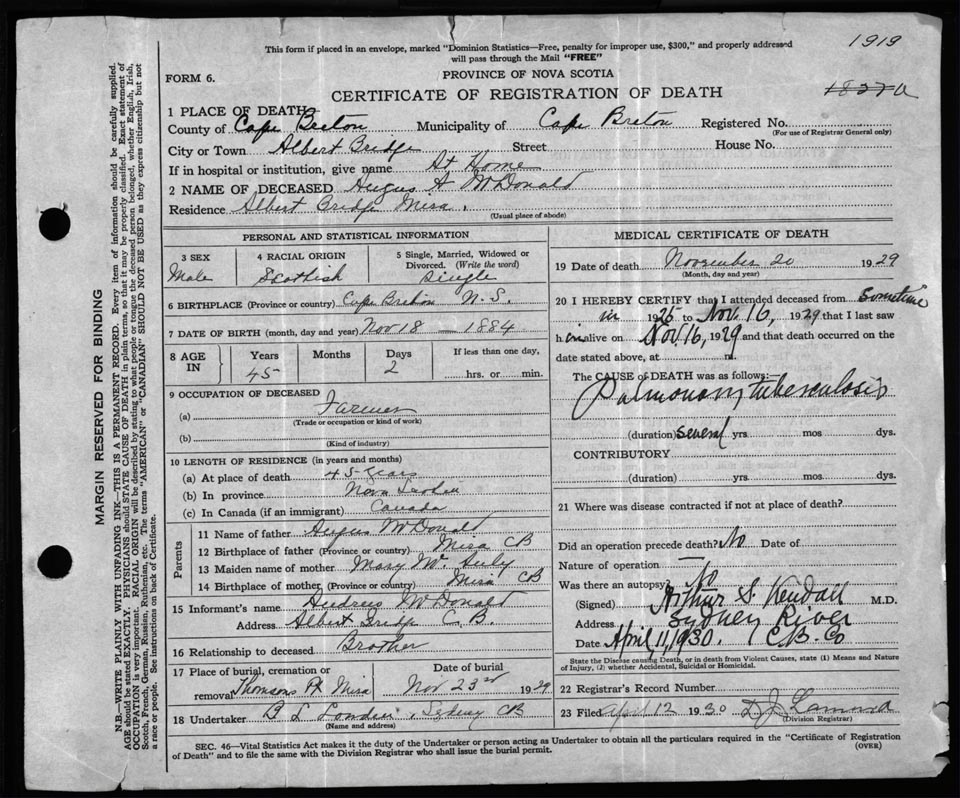 1919
This form if placed in an envelope, marked "Dominion Statistics—Free, penalty for improper use, $300," and properly addressed
will pass through the Mail "FREE"
FORM 6.
PROVINCE OF NOVA SCOTIA
CERTIFICATE OF REGISTRATION OF DEATH
1837a
1 PLACE OF DEATH
County of Cape Breton Municipality of Cape Breton Registered No.
(For use of Registrar General only)
City or Town Albert Bridge Street House No.
If in hospital or institution, give name At Home
2 NAME OF DECEASED Angus A McDonald
Residence Albert Bridge Mira.
(Usual place of abode)
PERSONAL AND STATISTICAL INFORMATION
3 SEX Male
4 RACIAL ORIGIN Scottish
5 Single, Married, Widowed or Divorced. (Write the word) Single
6 BIRTHPLACE (Province or country) Cape Breton N.S.
7 DATE OF BIRTH (month, day and year) Nov 18 — 1884
8 AGE IN Years 45 Months Days 2 If less than one day, hrs. or min.
9 OCCUPATION OF DECEASED
(a) Farmer
(Trade or occupation or kind of work)
(b)
(Kind of industry)
10 LENGTH OF RESIDENCE (in years and months)
(a) At place of death 45 years
(b) In province Nova Scotia
(c) In Canada (if an immigrant) Canada
Parents
11 Name of father Angus McDonald
12 Birthplace of father (Province or country) Mira CB
13 Maiden name of mother Mary Mc
14 Birthplace of mother, (Province or country) Mira CB
15 Informant's name McDonald
Address Albert Bridge C.B.
16 Relationship to deceased Brother
17 Place of burial, cremation or removal Thomsons Pt Mira Date of burial Nov 23rd 1929
18 Undertaker B L Sydney CB
(Name and address)
MEDICAL CERTIFICATE OF DEATH
19 Date of death November 20 1929
(Month, day and year)
20 I HEREBY CERTIFY that I attended deceased from sometime
in 1925 to Nov. 16, 1929 that I last saw
him alive on Nov 16, 1929 and that death occurred on the
date stated above, at m.
The CAUSE OF DEATH was as follows:
Pulmonary tuberculosis
(duration) several yrs. mos. dys.
CONTRIBUTORY
(duration) yrs. mos. dys.
21 Where was disease contracted if not at place of death?
Did an operation precede death? No Date of
Nature of operation —
Was there an autopsy? No
(Signed) Arthur S. Kendall M.D.
Address Sydney River
Date April, 11, 1930. C.B. Co
State the Disease causing Death, or in death from Violent Causes, state (1) Means and Nature
of Injury, (2) whether Accidental, Suicidal or Homicidal.
22 Registrar's Record Number
23 Filed April 12 1930 D J
(Division Registrar)
SEC. 46—Vital Statistics Act makes it the duty of the Undertaker or person acting as Undertaker to obtain all the particulars required in the "Certificate of Registration
of Death" and to file the same with the Division Registrar who shall issue the burial permit.
(OVER)
MARGIN RESERVED FOR BINDING
N.B.—WRITE PLAINLY WITH UNFADING INK—THIS IS A PERMANENT RECORD. Every item of information should be carefully supplied.
AGE should be stated EXACTLY. PHYSICIANS should STATE CAUSE OF DEATH in plain terms, so that it may be properly classified. Exact statement of
OCCUPATION is very important. RACIAL ORIGIN will be described by stating to what people or tongue the deceased person belonged, whether English, Irish,
Scotch, French, German, Russian, Ruthenian, etc. The terms "AMERICAN" or "CANADIAN" SHOULD NOT BE USED as they express citizenship but not
a race or people. See instructions on back of Certificate.